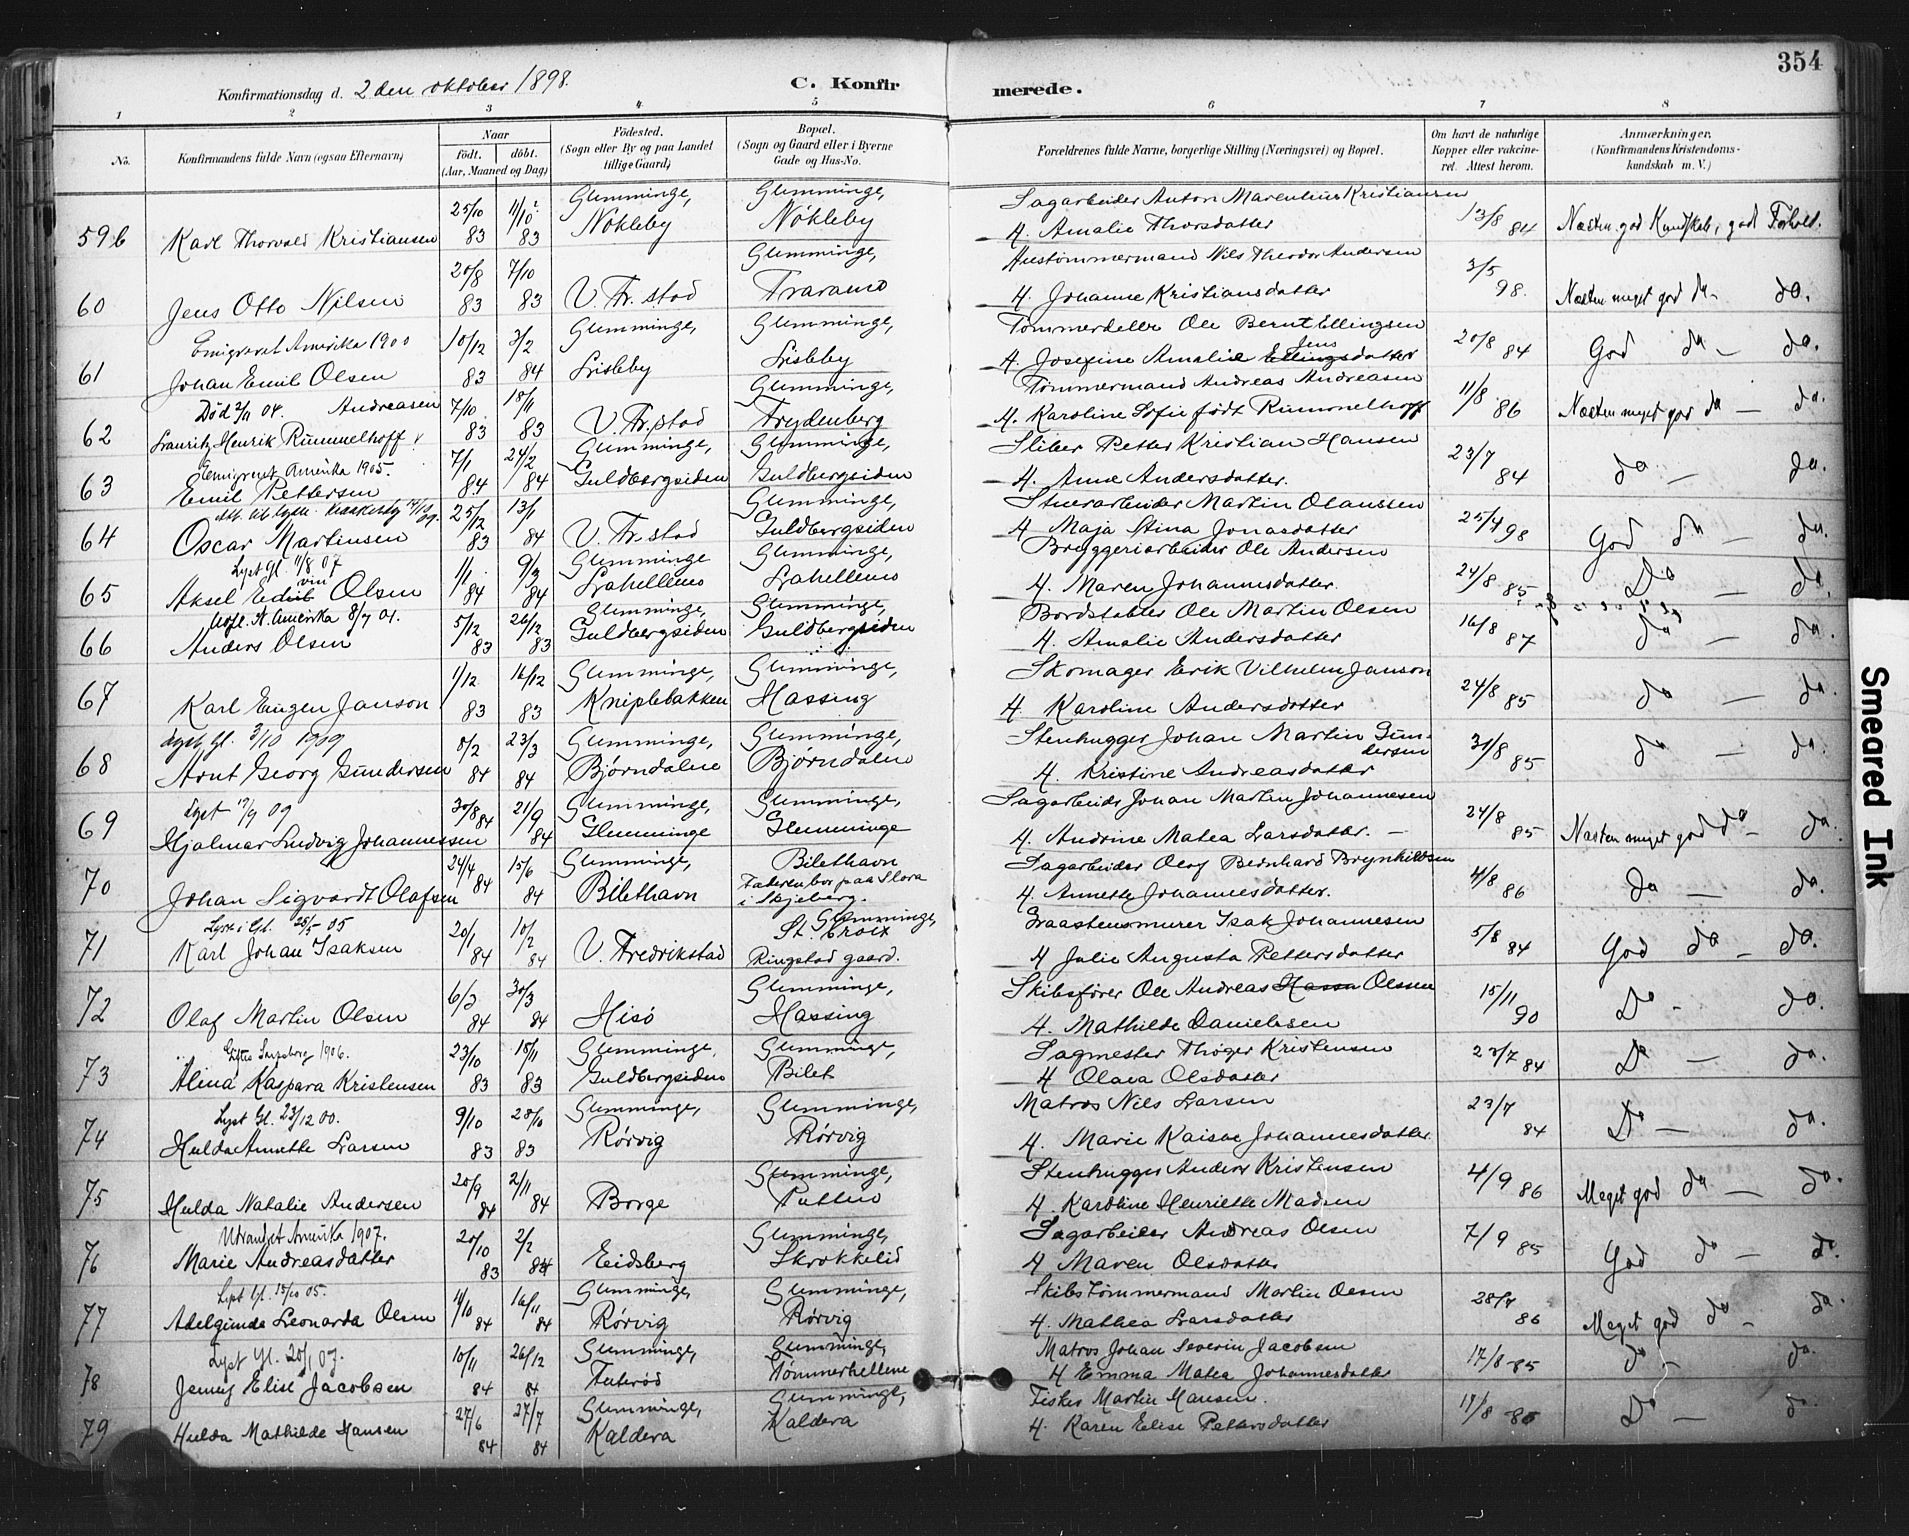 354
Konfirmationsdag d. 2 den oktober 1898.
C. Konfirmerede.
1 2 3 4 5 6 7 8
No. Konfirmandens fulde Navn (ogsaa Efternavn) Naar født. døbt. (Aar, Maaned og Dag) Fødested. (Sogn eller By og paa Landet tillige Gaard) Bopæl. (Sogn og Gaard eller i Byerne Gade og Hus-No. Forældrenes fulde Navne, borgerlige Stilling (Næringsvei) og Bopæl. Om havt de naturlige Kopper eller vakcineret. Attest herom. Anmærkninger. (Konfirmandens Kristendomskundskab m. V.)
59b Karl Thorvald Kristiansen 25/10 83 11/10 83 Glemminge, Nökleby Glemminge, Nökleby Sagarbeider Anton Marentius Kristiansen H. Amalie Thorsdatter 13/8 84 Næsten god Kundskab, god Forhold.
60 Jens Otto Nilsen 20/8 83 7/10 83 V. Fr.stad Glemminge, Traraneo Hustømmermand Nils Theodor Andersen H. Johanne Kristiansdatter 3/5 98. Næsten meget god do - do.
61 Emigreret Amerika 1900 Johan Emil Olsen 10/12 83 3/2 84 Glemminge, Lisleby Glemminge, Lisleby Tømmerdeler Ole Bernt Ellingsen H. Josefine Amalie Ellingsdatter Jens 20/8 84 God do - do.
62 Død 2/11 04. Andreasen Lauritz Henrik Rummelhoff 7/10 83 18/11 83 V. Fr.stad Glemminge, Frydenberg Tømmermand Andreas Andreasen H. Karoline Sofie født Rummelhoff 11/8 86 Næsten meget god do - do.
63 Emigreret Amerika 1905. Emil Pettersen 7/1 84 24/2 84 Glemminge, Guldbergsiden Glemminge, Guldbergsiden Sliber Petter Kristian Hansen H. Anne Andersdatter. 23/7 84 do - do.
64 Oscar Martinsen 25/12 83 13/1 84 V. Fr.stad Glemminge, Guldbergsiden Stuerarbeider Martin Olaussen H. Maja Stina Jonasdatter 25/4 98 God do - do.
65 Lyst Gl. 11/8 07 Aksel Edvin Olsen 1/1 84 9/3 84 Glemminge Lahelleno Glemminge, Lahelleno Bryggeriarbeider Ole Andersen H. Maren Johannesdatter. 24/8 85 Do - do.
66 Utfl. N. Amerika 8/7 01. Anders Olsen 5/12 83 26/12 83 Glemminge, Guldbergsiden Glemminge, Guldbergsiden Bordstabler Ole Martin Olsen H. Amalie Andersdatter 16/8 87 do - do.
67 Karl Eugen Janson 1/12 83 16/12 83 Glemminge, Kniplebakken Glemminge, Hassing Skomager Erik Vilhelm Janson H. Karoline Andersdatter 24/8 85 do - do.
68 Lyst Gl. 3/10 1909 Arnt Georg Gundersen 8/2 84 23/3 84 Glemminge, Bjørndalene Glemminge, Bjørndalene Stenhugger Johan Martin Gundersen H. Kristine Andreasdatter 31/8 85 do - do.
69 Lyst 12/9 09 Hjalmar Ludvig Johannessen 30/8 84 21/9 84 Glemminge, Glemminge Glemminge, Glemminge Sagarbeider Johan Martin Johannesen H. Andrine Matea Larsdatter. 24/8 85 Næsten meget god do - do.
70 Johan Sigvardt Olafsen 24/4 84 15/6 84 Glemminge, Bilethavn Bilethavn Faderen bor paa Slora i Skjeberg. Sagarbeider Olof Bernhard Brynhildsen H. Annette Johannesdatter. 4/8 86 do - do.
71 Lyst i Gl. 28/5 05 Karl Johan Isaksen 20/1 84 10/2 84 V. Fredrikstad Glemminge, St. Croix Ringstad gaard. Graastensmurer Isak Johannesen H Julie Augusta Pettersdatter 5/8 84 God do - do.
72 Olaf Martin Olsen 6/3 84 30/3 84 Hisö Glemminge, Hassing Skibsfører Ole Andreas Olssen H. Mathilde Danielsen 15/11 90 Do - do.
73 Gift Sarpsborg 1906. Alina Kaspara Kristensen 23/10 83 15/11 83 Glemminge, Guldbergsiden Glemminge, Bilet Sagmester Thøger Kristensen H Olava Olsdatter 23/7 84 Do - do.
74 Lyst Gl. 23/12 00. Hulda Annette Larsen 9/10 83 28/10 83 Glemminge, Rørvig Glemminge, Rørvig Matros Nils Larsen H. Marie Kaisae Johannesdatter. 23/7 84 Do - do.
75 Hulda Natalie Andersen 20/9 84 2/11 84 Borge Glemminge, Putten Stenhugger Anders Kristensen H. Karoline Henriette Madsen 4/9 86 Meget god do - do.
76 Utvandret Amerika 1907. Marie Andreasdatter 20/10 83 2/2 84 Eidsberg Glemminge, Skrokkelid Sagarbeider Andreas Olsen H Maren Olsdatter 7/9 85 God do - do.
77 Lyst Gl. 15/10 05. Adelgunda Leonarda Olsen 4/10 84 16/11 84 Glemminge, Rørvig Glemminge, Rørvig Skibstømmermand Martin Olsen H. Mathea Larsdatter 28/7 86 Meget god do - do.
78 Lyst Gl. 20/1 07. Jenny Elise Jacobsen 10/11 84 26/12 84 Glemminge, Faterød Glemminge, Tømmerhellene Matros Johan Severin Jacobsen H Emma Matea Johannesdatter 17/8 85 do - do.
79 Hulda Mathilde Hansen 27/6 84 27/7 84 Glemminge, Kaldera Glemminge, Kaldera Fisker Martin Hansen. H. Karen Elise Pettersdatter 17/8 85 Do - do.
Smeared Ink